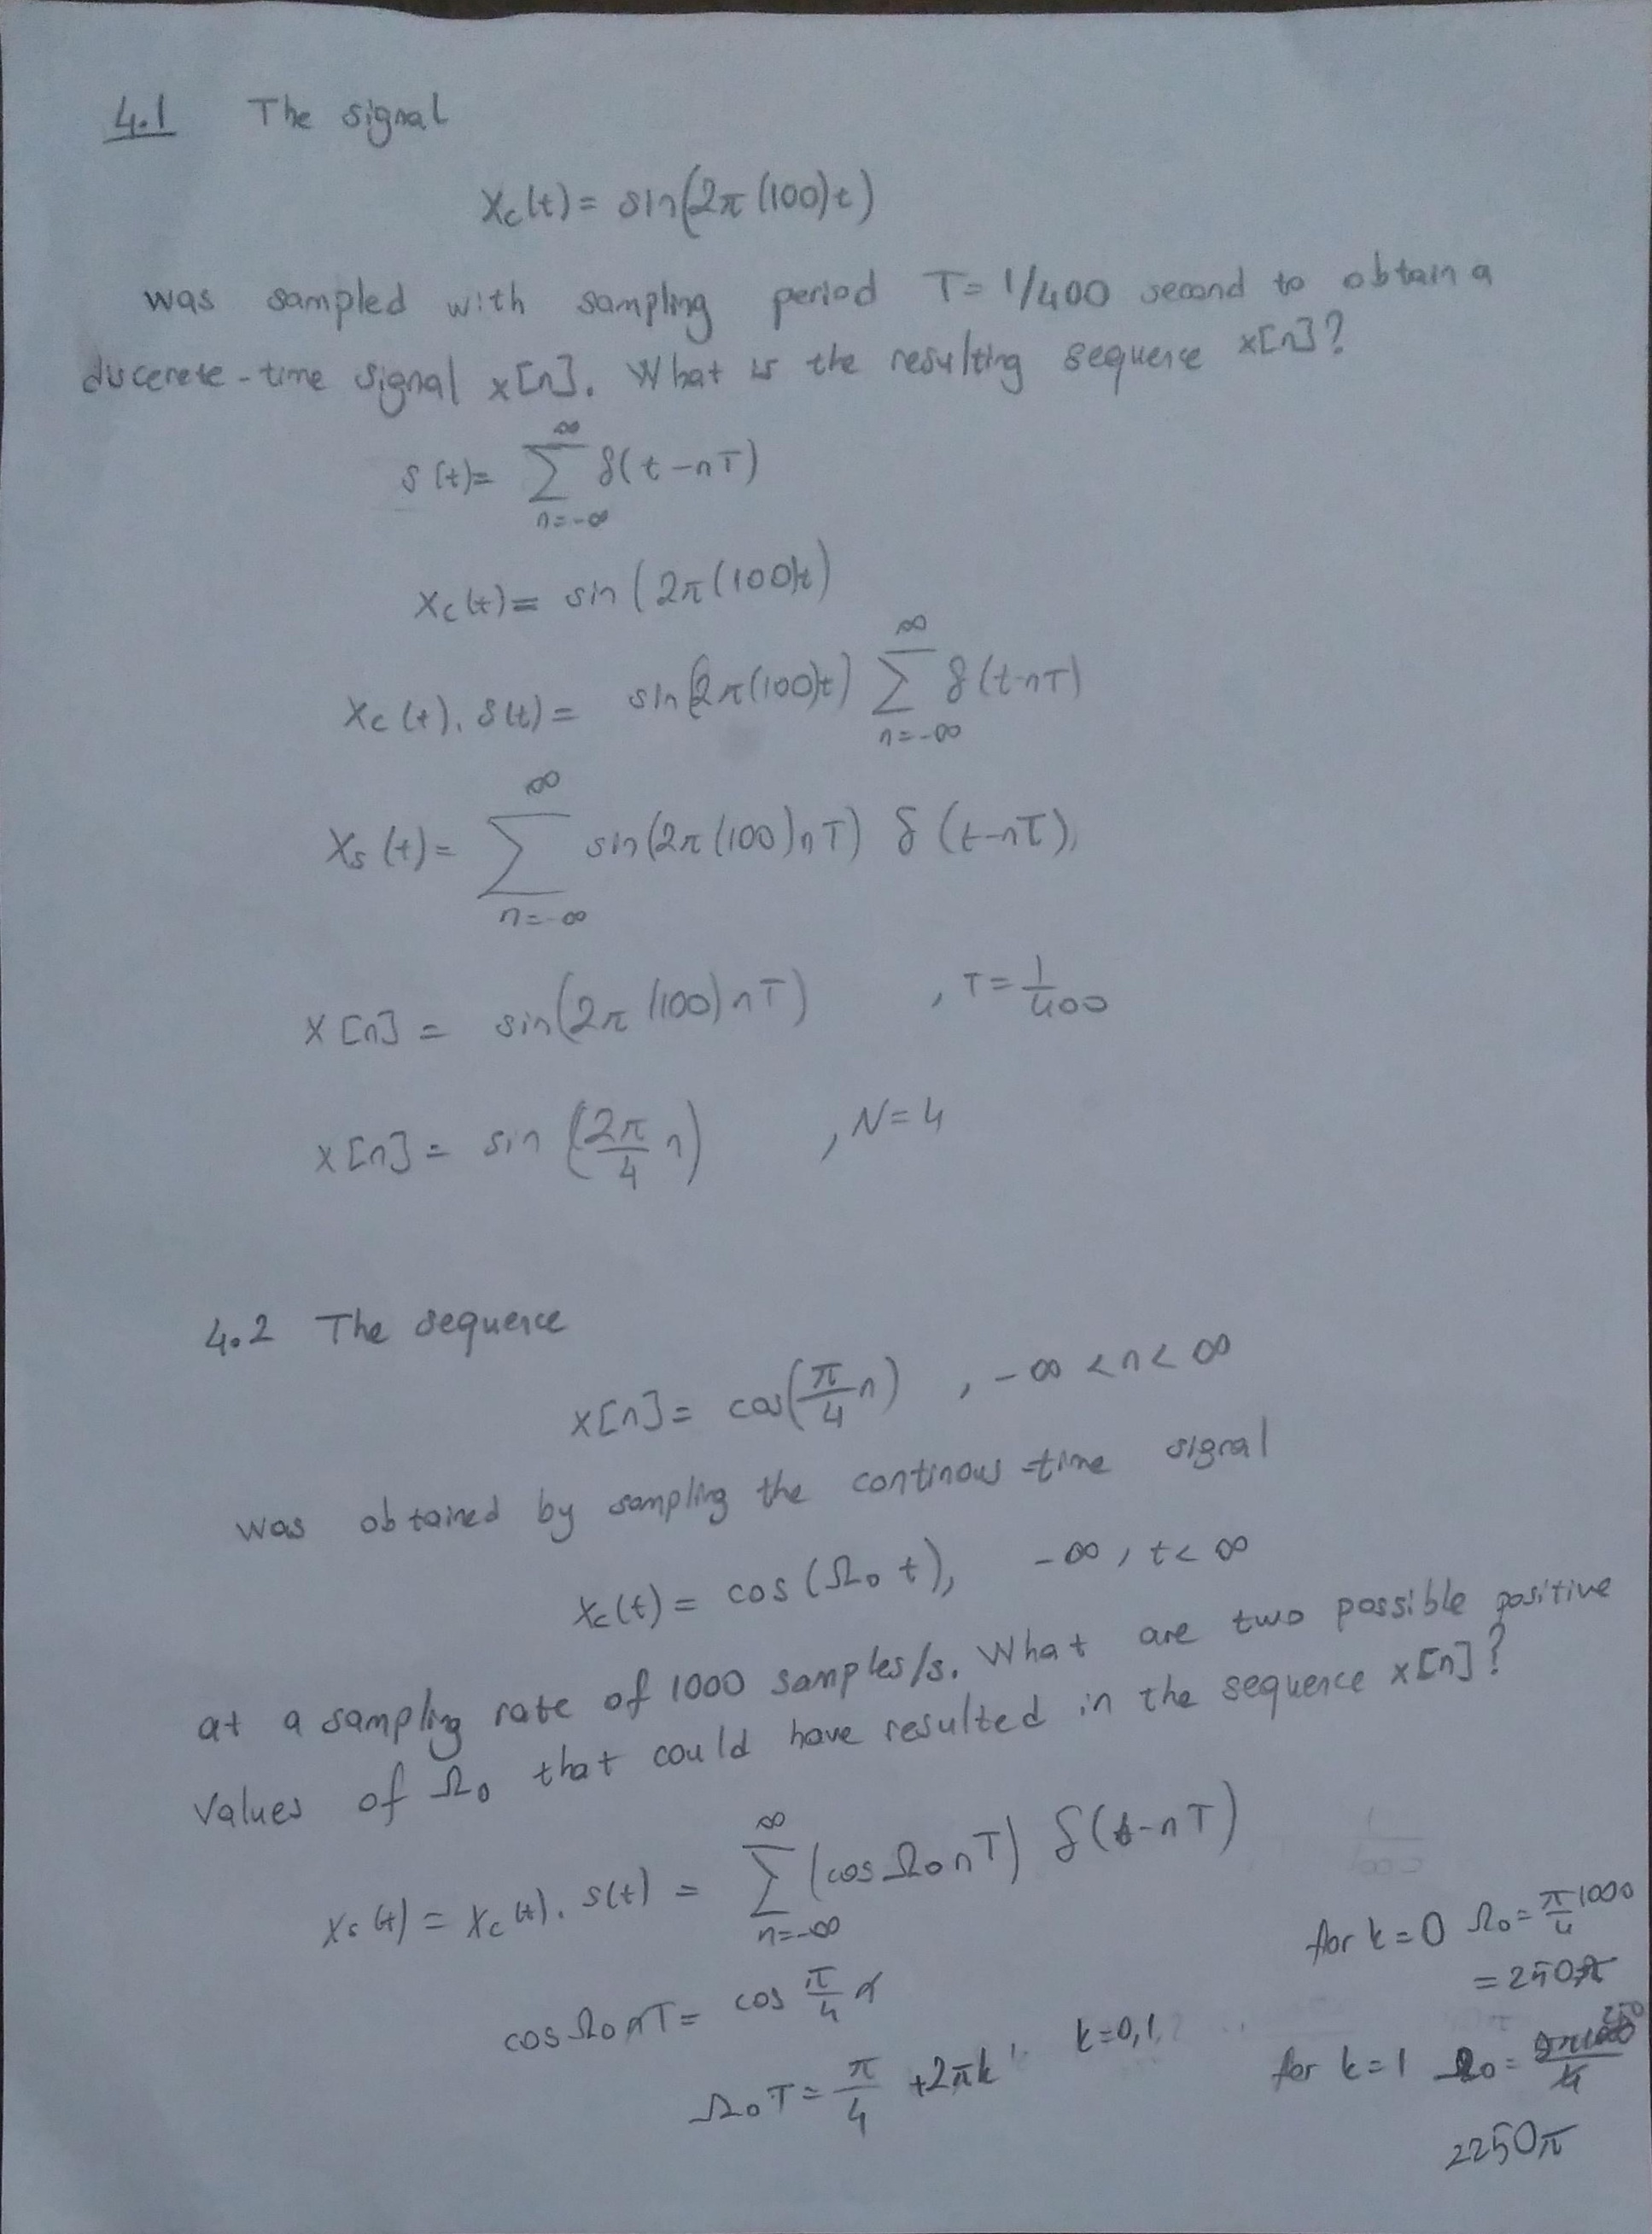 4.1 The signal
Xc(t) = sin(2π(100)t)
was sampled with sampling period T = 1/400 second to obtain a
discerete-time signal x[n]. What is the resulting sequence x[n]?
s(t) = ∑_{n=-∞}^{∞} δ(t-nT)
Xc(t) = sin(2π(100)t)
Xc(t). s(t) = sin(2π(100)t) ∑_{n=-∞}^{∞} δ(t-nT)
Xs(t) = ∑_{n=-∞}^{∞} sin(2π(100)nT) δ(t-nT),
X[n] = sin(2π(100)nT) , T = 1/400
x[n] = sin(2π/4 n) , N=4
4.2 The sequence
x[n] = cos(π/4 n) , -∞ < n < ∞
was obtained by sampling the continous-time signal
Xc(t) = cos(Ω₀t), -∞, t < ∞
at a sampling rate of 1000 samples/s. What are two possible positive
values of Ω₀ that could have resulted in the sequence x[n]?
Xs(t) = Xc(t). s(t) = ∑_{n=-∞}^{∞} (cos Ω₀nT) δ(t-nT)
cos Ω₀nT = cos π/4 n
Ω₀T = π/4 + 2πk k=0,1
for k=0 Ω₀ = π/4 1000
= 250π
for k=1 Ω₀ =
2250π